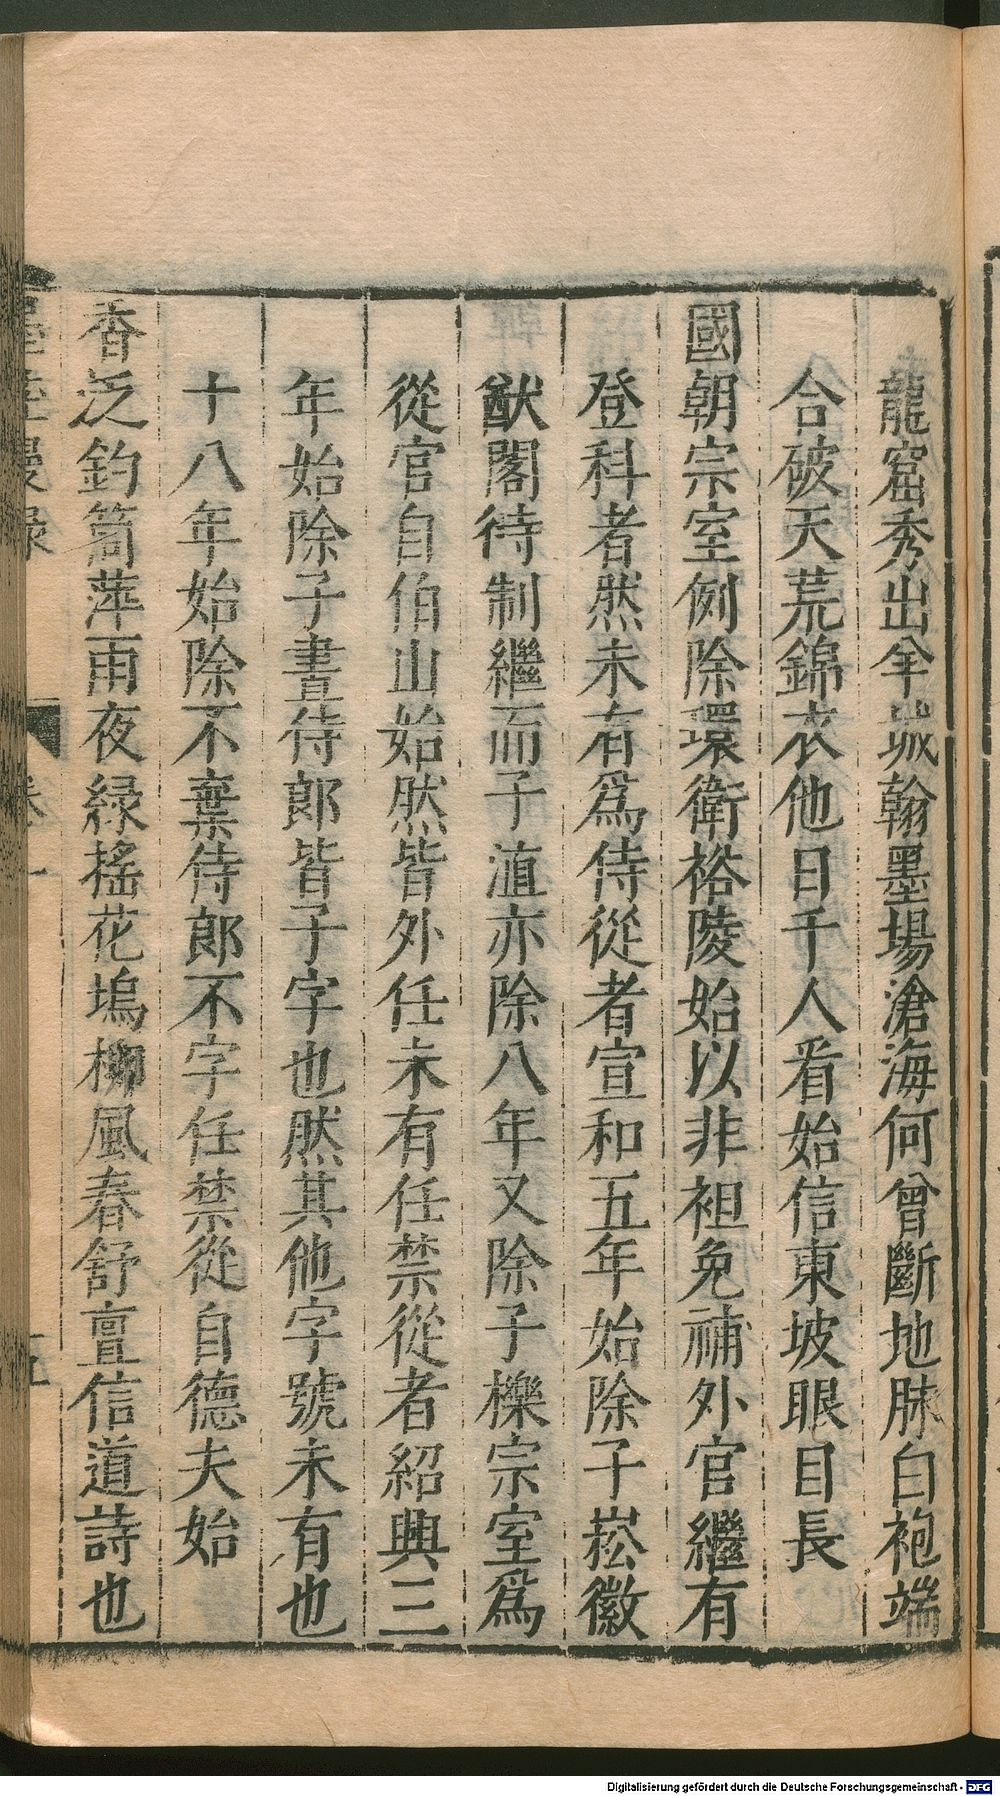 龍窟秀出羊城翰墨場滄海何曾斷地脉白袍端
合破天荒錦衣他日千人看始信東坡眼目長
國朝宗室例除環衛裕陵始以非袒免補外官繼有
登科者然未有爲侍從者宣和五年始除子崧徽
猷閣待制繼而子湞亦除八年又除子櫟宗室爲
從官自伯山始然皆外任未有任禁從者紹興三
年始除子晝侍郎皆子字也然其他字號未有也
十八年始除不棄侍郎不字任禁從自德夫始
香泛釣筩萍雨夜緑搖花塢柳風春舒亶信道詩也
墨莊漫錄
卷十
五
Digitalisierung gefördert durch die Deutsche Forschungsgemeinschaft - DFG